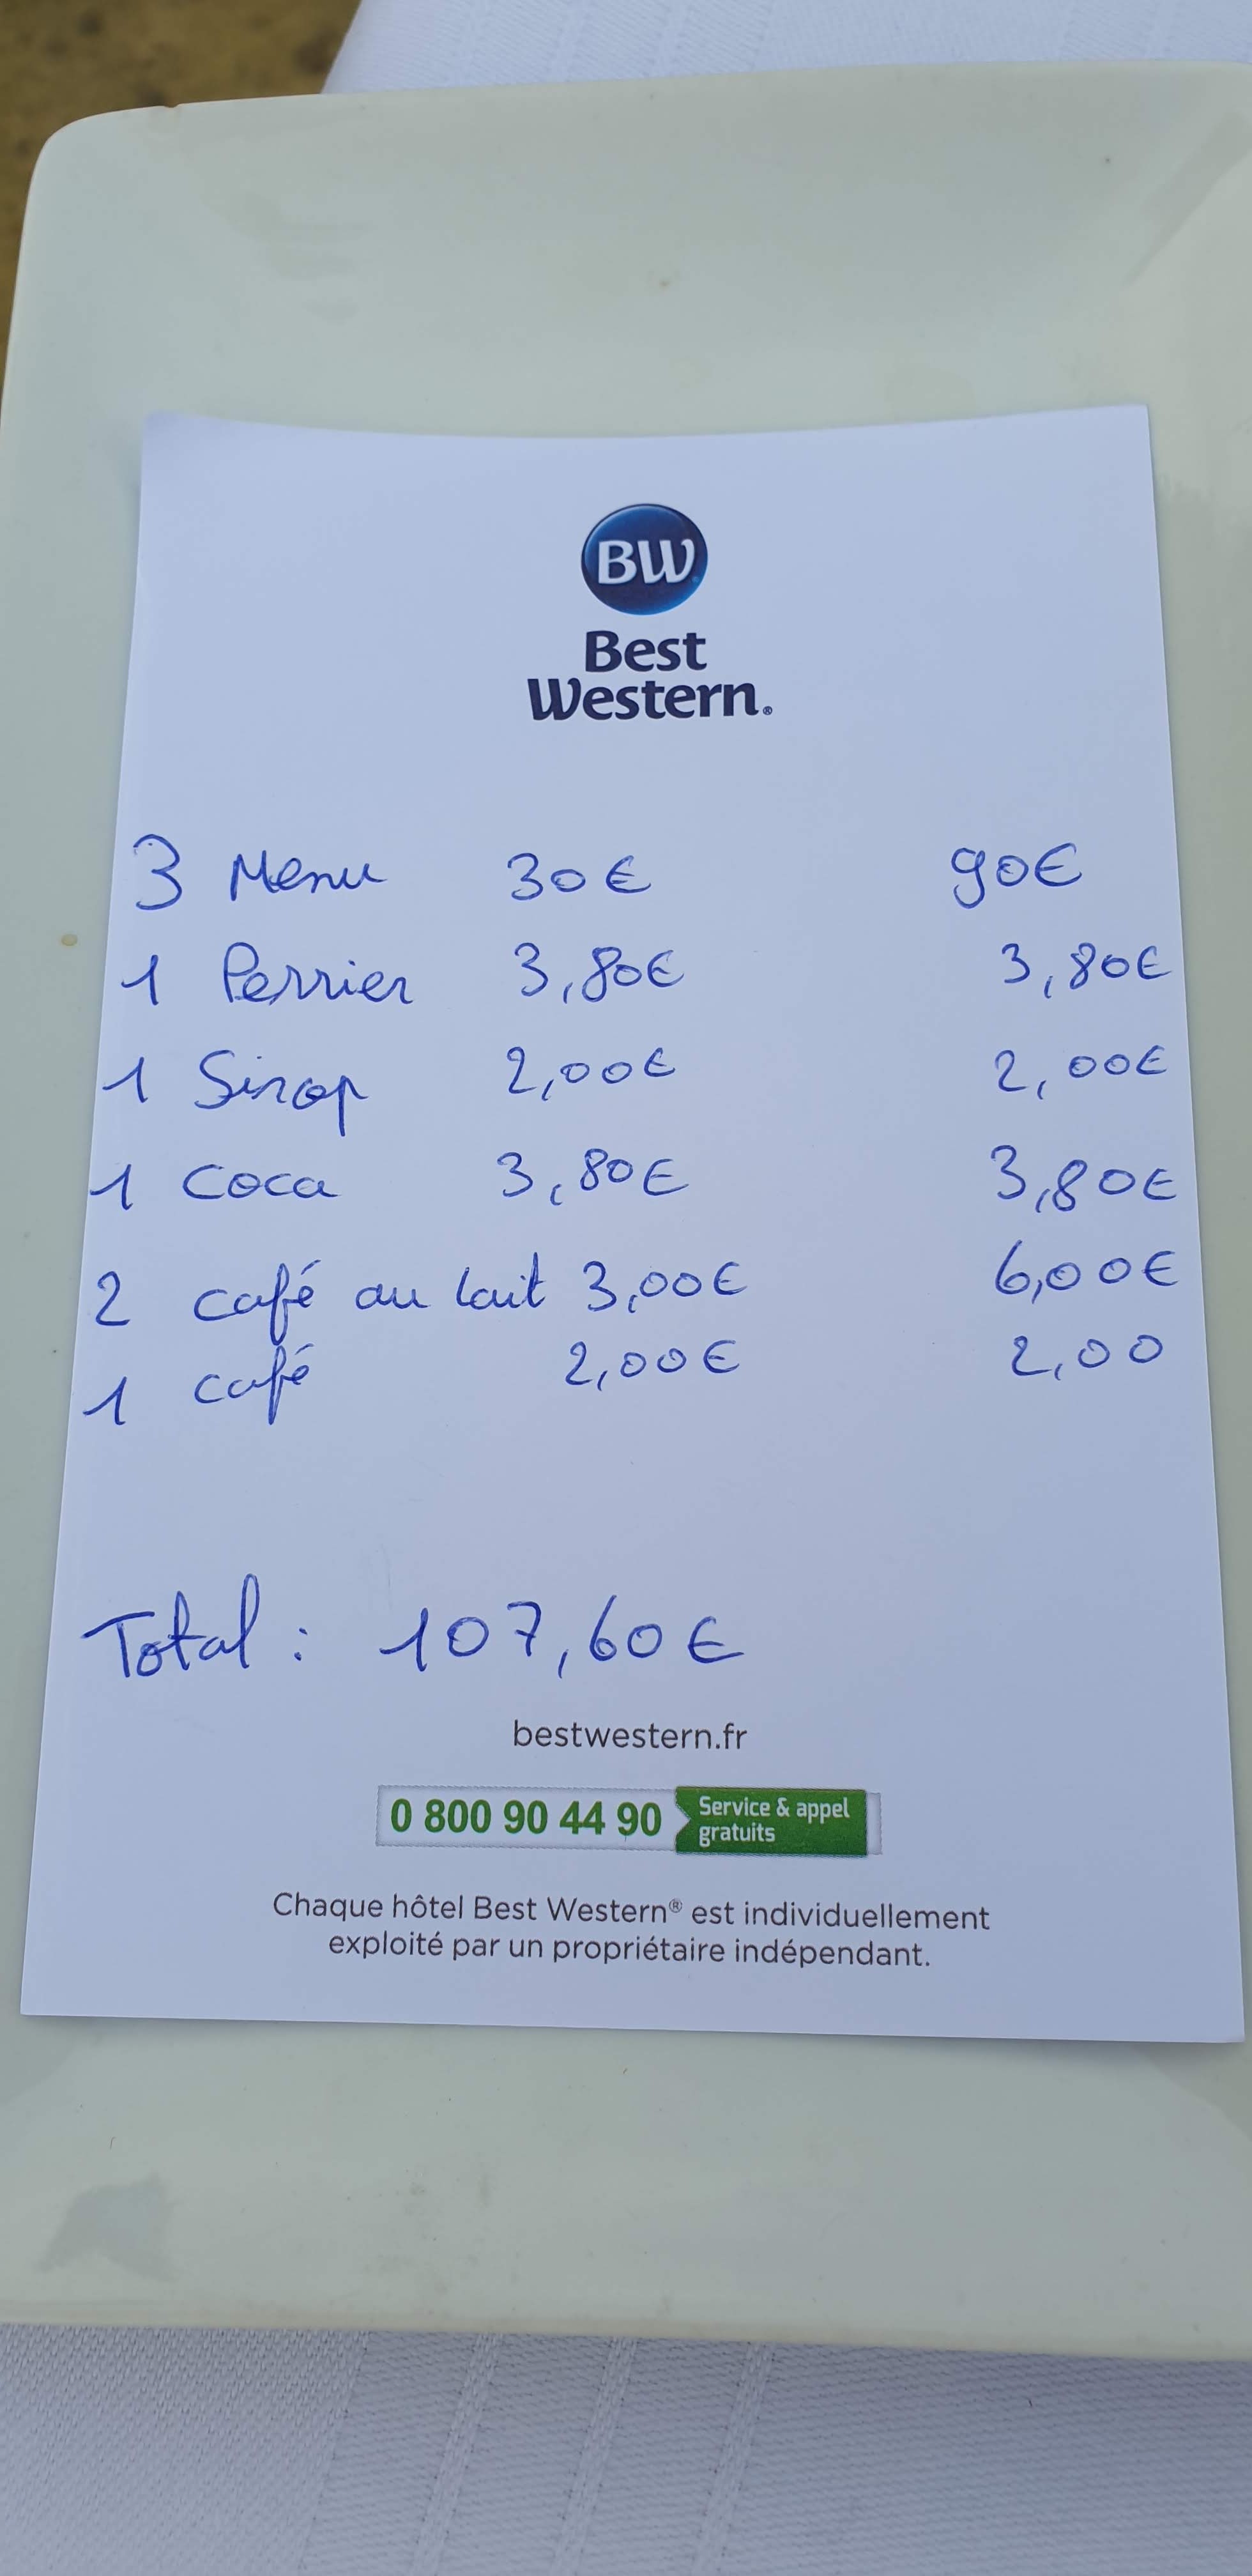 BW
Best
Western.®
3 Menu 30€ 90€
1 Perrier 3,80€ 3,80€
1 Sirop 2,00€ 2,00€
1 Coca 3,80€ 3,80€
2 café au lait 3,00€ 6,00€
1 café 2,00€ 2,00
Total : 107,60€
bestwestern.fr
0 800 90 44 90 Service & appel
gratuits
Chaque hôtel Best Western® est individuellement
exploité par un propriétaire indépendant.